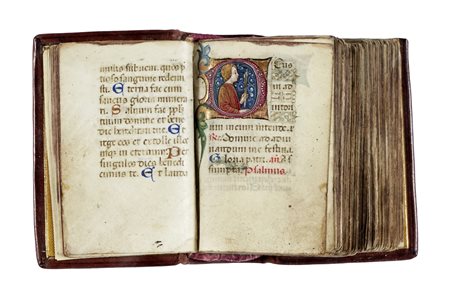 mulis subveni. quos p
tioso sanguine redemi
sti. Eterna fac cum
sanctis gloria munera
ri. Salvum fac popu
lum tuum domine et bene
dic hereditati tue. Et
rege eos et extolle illos
usqz in eternum. Per
singulos dies benedi
cimus te. Et lauda
Deus
in ad
iutori
um meum intende. R
Domine ad adiu
vandum me festina
Gloria patri. añ. As
sumpta. Psalmus.